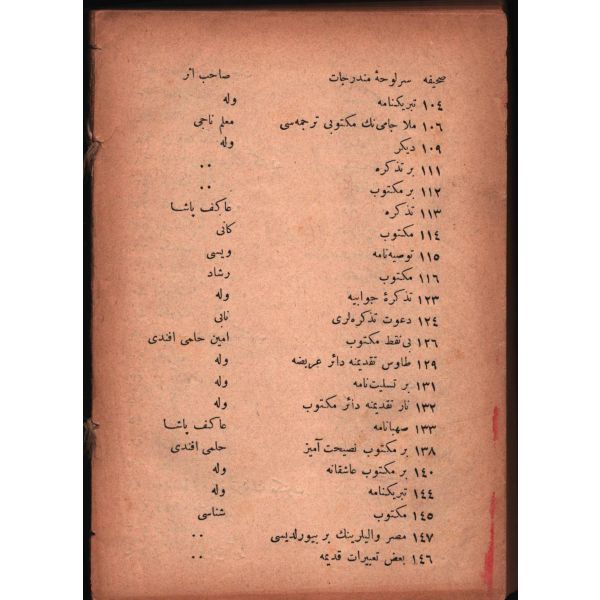 صحیفه سرلوحهٔ مندرجات صاحب اثر
١٠٤ تبریکنامه وله
١٠٦ ملا جامی‌نك مکتوبی ترجمه‌سی معلم ناجی
١٠٩ دیکر وله
١١١ بر تذکره ٠٠
١١٢ بر مکتوب ٠٠
١١٣ تذکره عاکف پاشا
١١٤ مکتوب کانی
١١٥ توصیه‌نامه ویسی
١١٦ مکتوب رشاد
١٢٣ تذکرهٔ جوابیه وله
١٢٤ دعوت تذکره‌لری نابی
١٢٦ بی‌نقط مکتوب امین حلمی افندی
١٢٩ طاوس تقدیمنه دائر عریضه وله
١٣١ بر تسلیت‌نامه وله
١٣٢ نار تقدیمنه دائر مکتوب وله
١٣٣ صهبانامه عاکف پاشا
١٣٨ بر مکتوب نصیحت آمیز حلمی افندی
١٤٠ بر مکتوب عاشقانه وله
١٤٤ تبریکنامه وله
١٤٥ مکتوب شناسی
١٤٧ مصر والیلرینك بر بیورلدیسی ٠٠
١٤٦ بعض تعبیرات قدیمه ٠٠